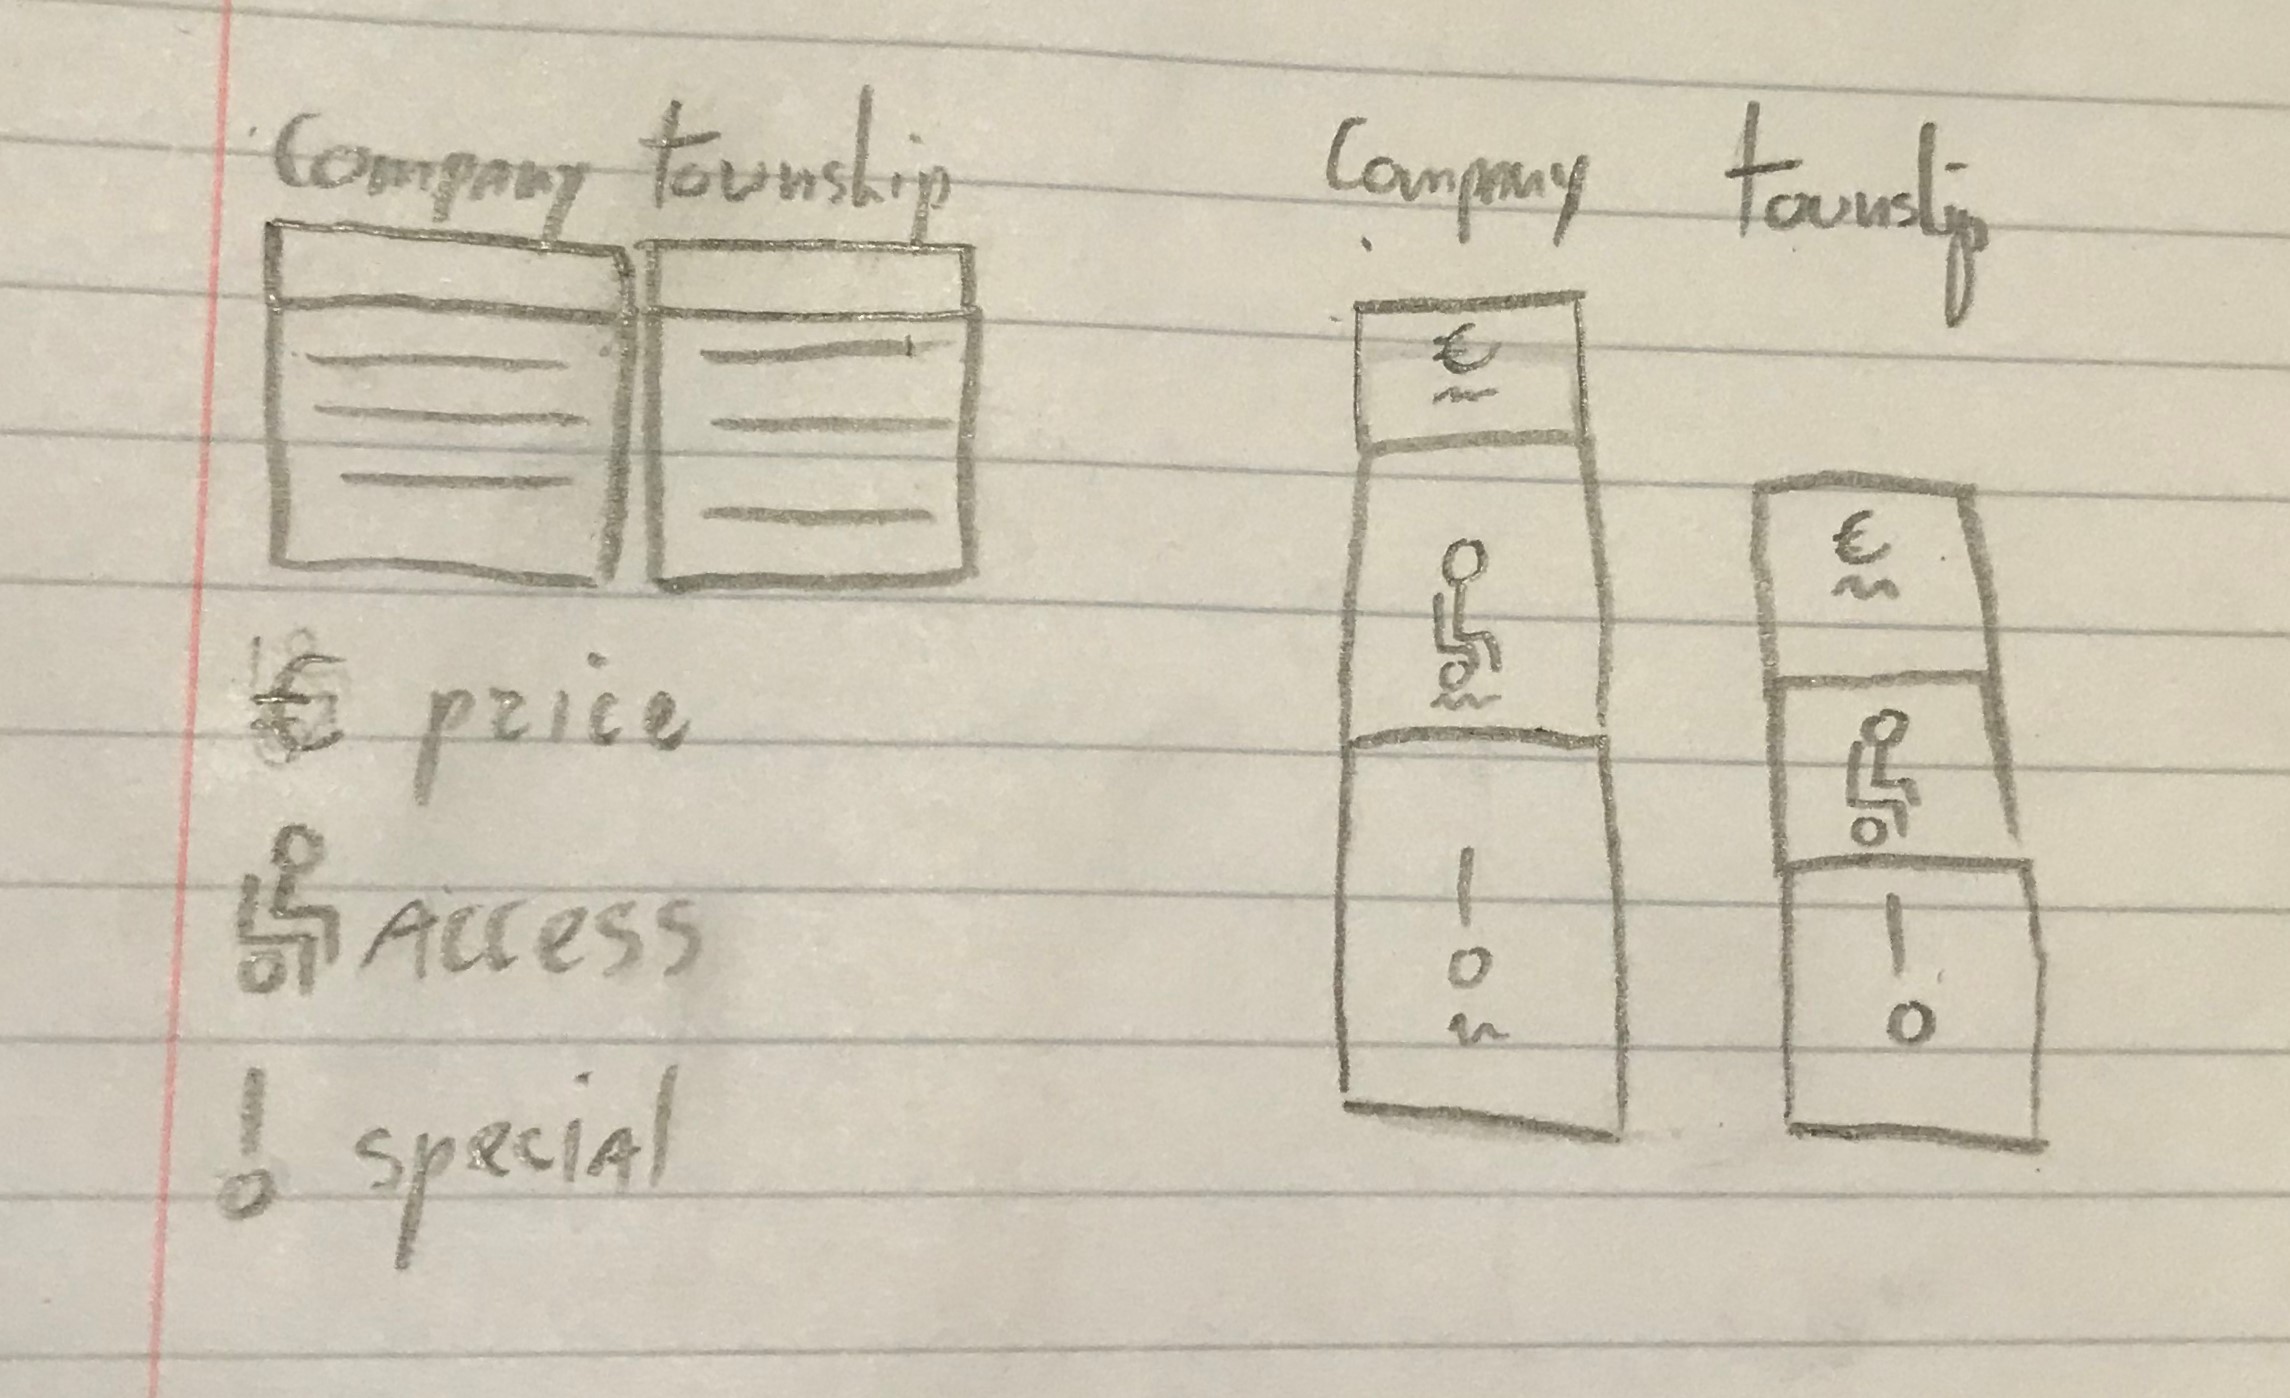 Company township
€ price
Access
! special
Company township
€
€
!
!